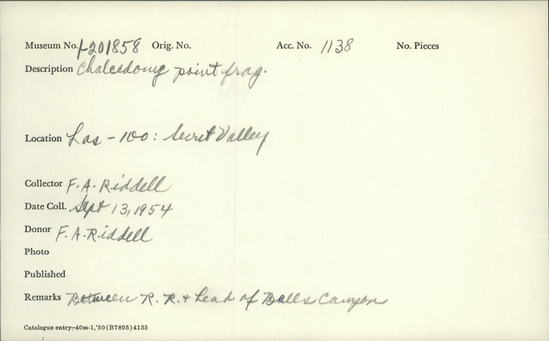 Museum No. 1-201858 Orig. No. Acc. No. 1138 No. Pieces
Description Chalcedony point frag.
Location Las-100: Secret Valley
Collector F.A. Riddell
Date Coll. Sept 13, 1954
Donor F.A. Riddell
Photo
Published
Remarks Between R.R. + head of Balls Canyon
Catalogue entry-40m-1,'50 (B7895) 4135